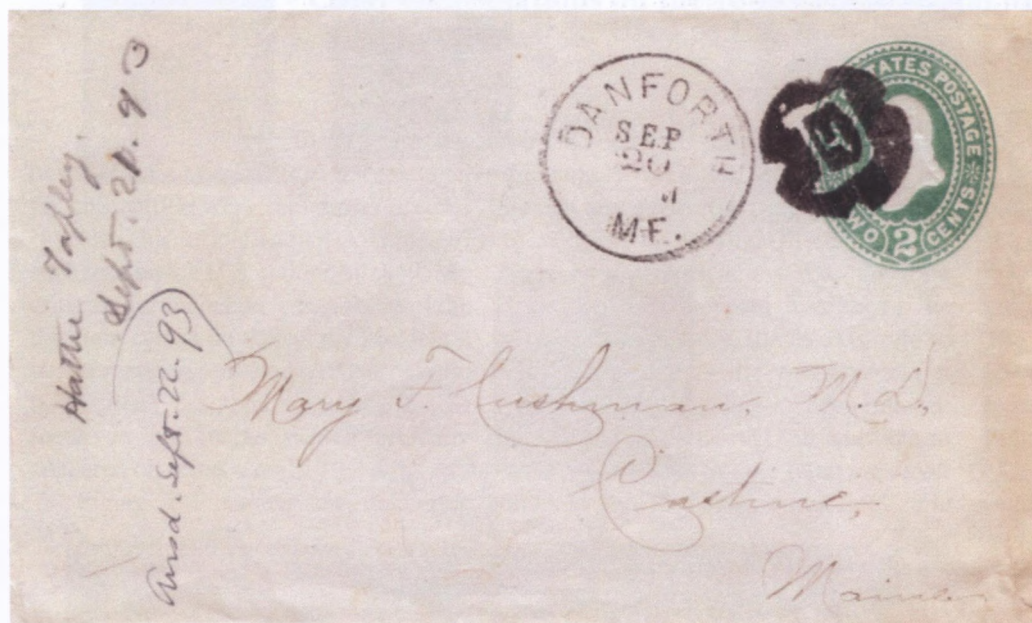 Hattie Tapley.
Sept. 20. 93
Ansd. Sept. 22. 93
DANFORTH
SEP
20
M
ME.
STATES POSTAGE
TWO 2 CENTS
Mary F. Cushman. M.D.,
Castine,
Maine